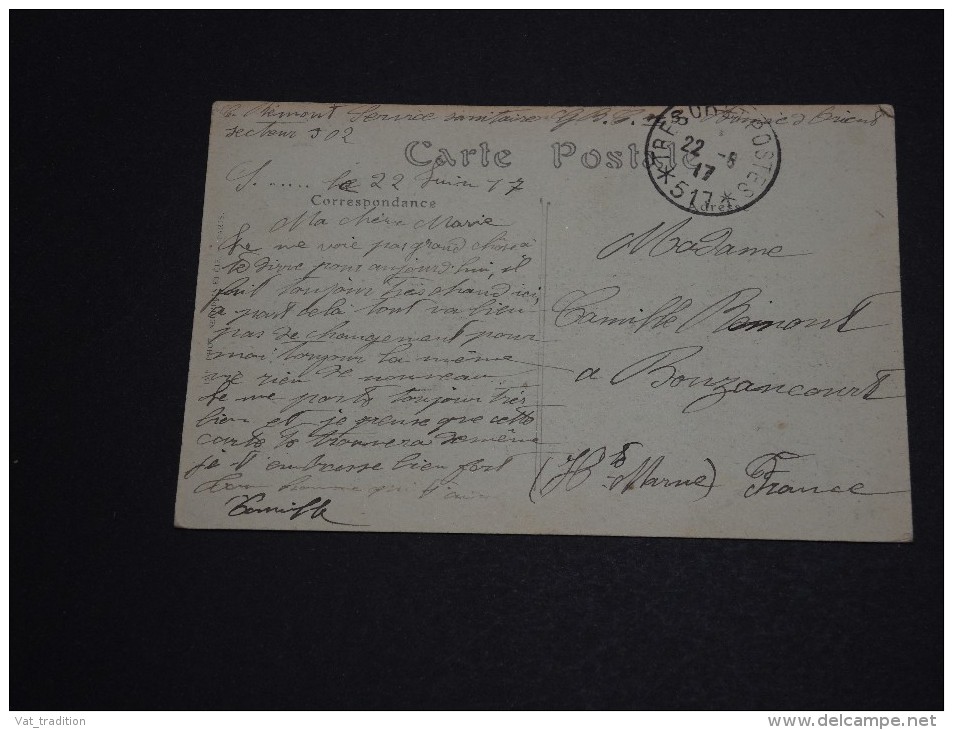 C. Rémont Service sanitaire d'Orient
secteur 502
Carte Postale
TRESOR ET POSTES
22 -6
17
*517*
S...... le 22 Juin 17
Correspondance
Adresse
Ma chère Marie
Je ne voie pas grand chose à
te dire pour aujourd'hui, il
fait toujour très chaud ici,
a part delà tout va bien
pas de changement pour
moi toujour la même
vie rien de nouveau.
Je me porte toujour très
bien et je pense que cette
carte te trouvera de même
je t'embrasse bien fort
Ton homme qui t'aime
Camille
Madame
Camille Rémont
a Bouzancourt
(Hte Marne) France
Vat_tradition
delcampe.net